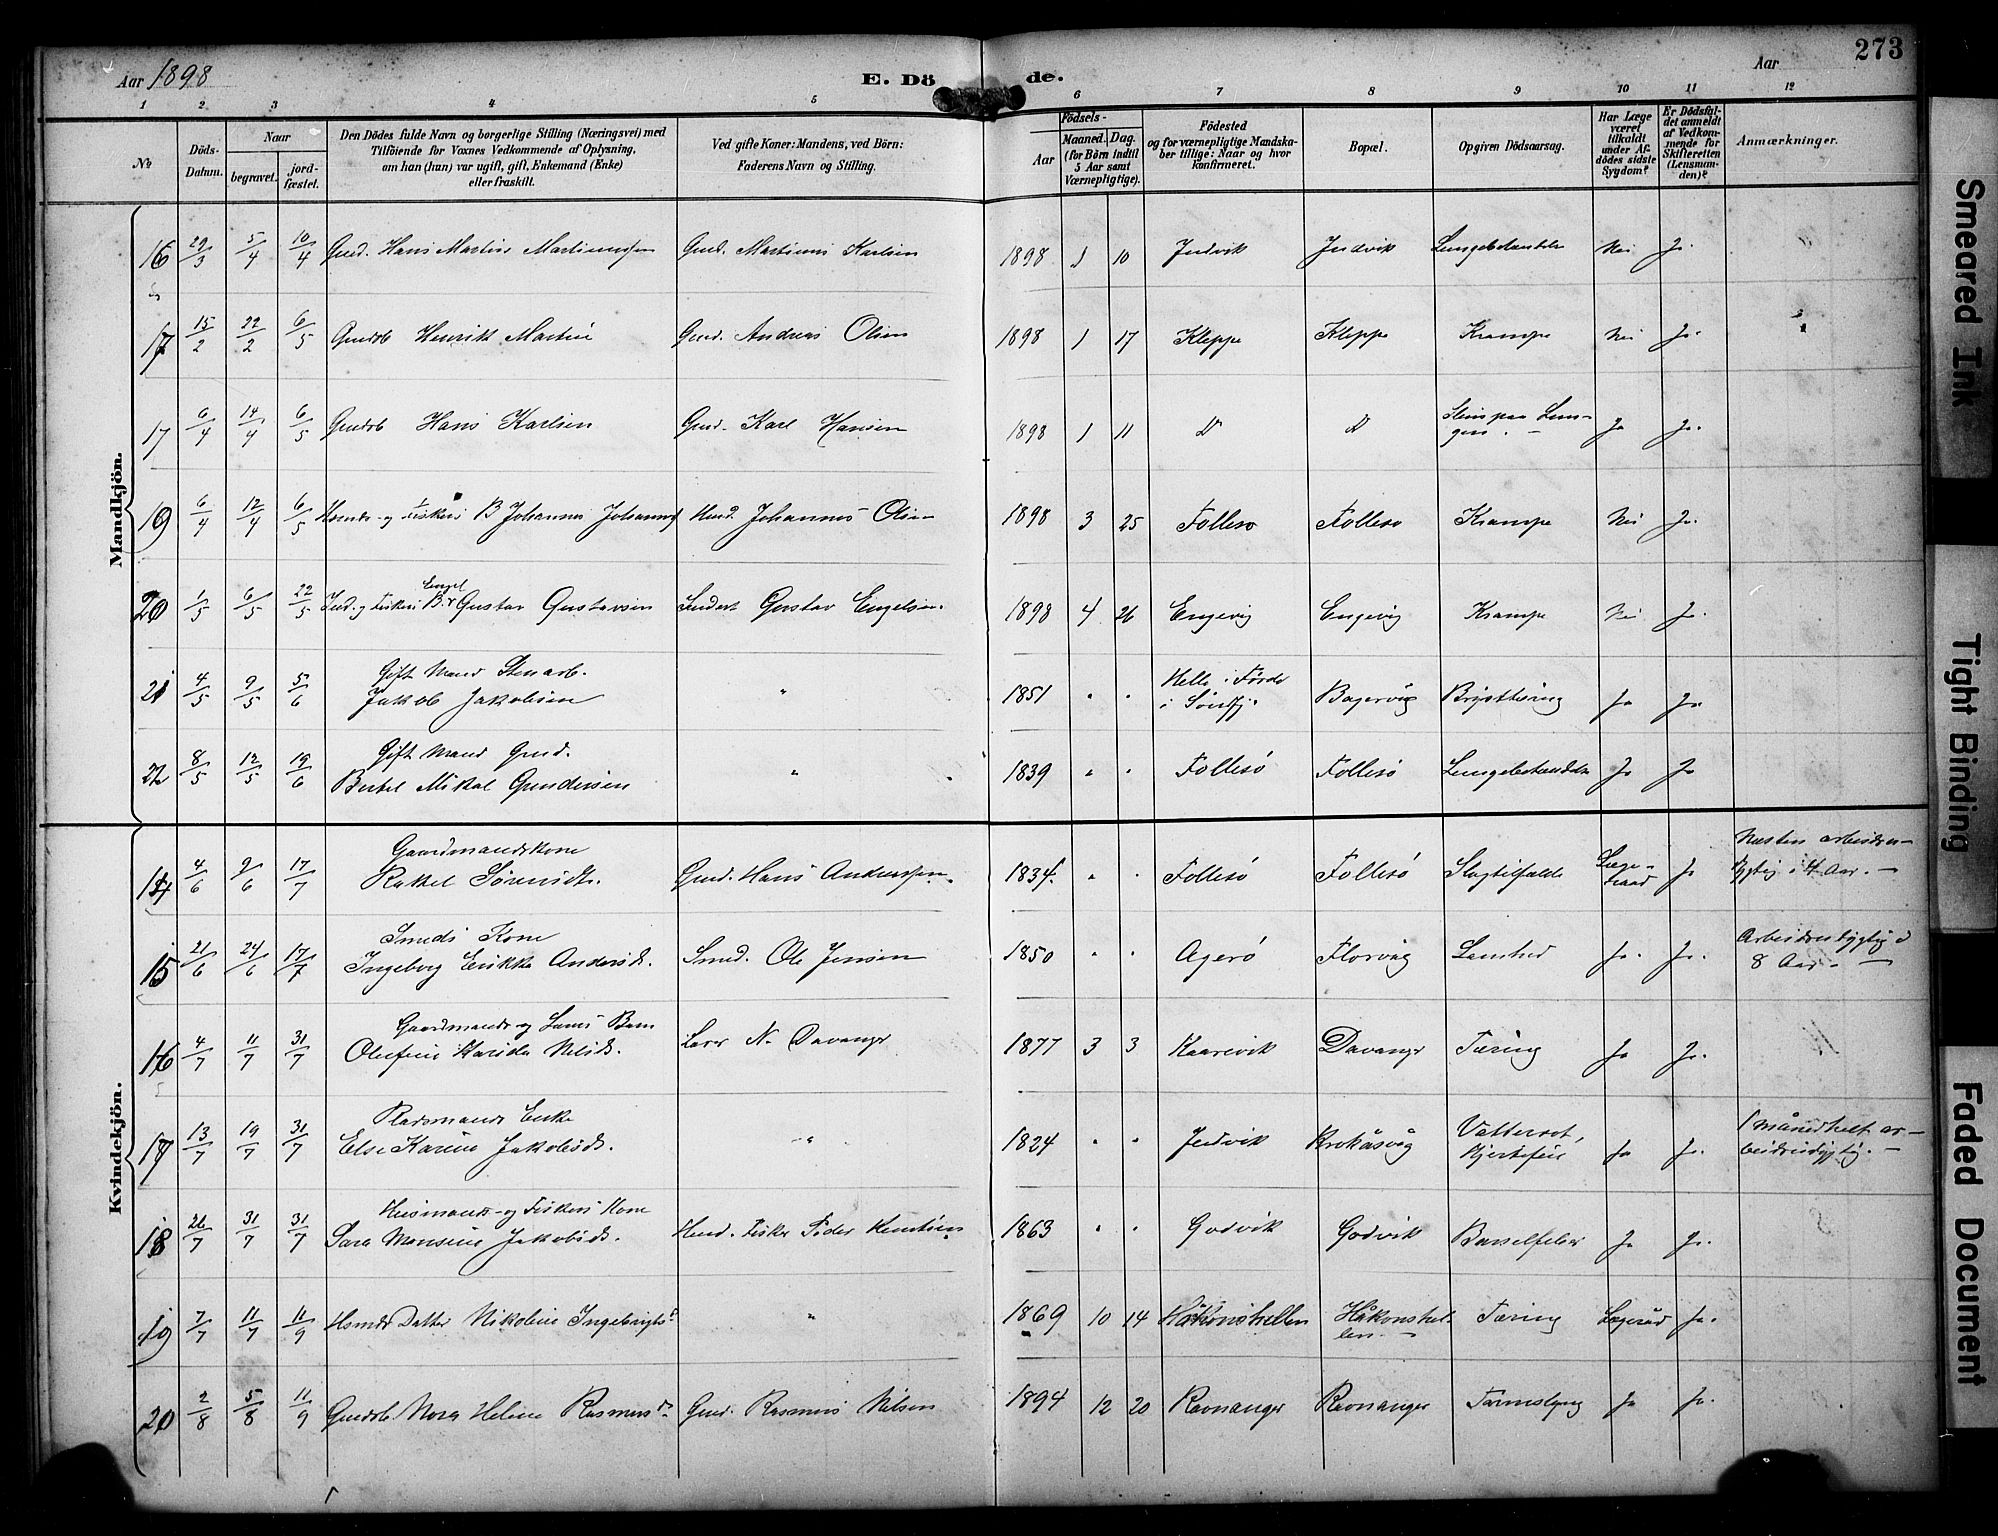 Aar 1898
E. Dö de.
Aar
273
1 2 3 4 5 6 7 8 9 10 11 12
No
Döds-
Datum.
Naar
begravet.
jord-
fæstet.
Den Dödes fulde Navn og borgerlige Stilling (Næringsvei) med
Tilföiende for Voxnes Vedkommende af Oplysning,
om han (hun) var ugift, gift, Enkemand (Enke)
eller fraskilt.
Ved gifte Koner: Mandens, ved Börn:
Faderens Navn og Stilling.
Födsels-
Aar
Maaned. Dag.
(for Börn indtil
5 Aar samt
Værnepligtige).
Födested
og for værnepligtige Mandska-
ber tillige: Naar og hvor
konfirmeret.
Bopæl.
Opgiven Dödsaarsag.
Har Læge
været
tilkaldt
under Af-
dödes sidste
Sygdom?
Er Dödsfal-
det anmeldt
af Vedkom-
mende for
Skifteretten
(Lensman-
den)?
Anmærkninger.
Mandkjön.
16 29/3 5/4 10/4 Gmd. Hans Martin Martinussen Gmd. Martinus Karlsen 1898 1 10 Indvik Indvik Lungebetændelse Nei Ja.
17 15/2 22/2 6/5 Gmdsb Henrik Martin Gmd. Andreas Olsen 1898 1 17 Kleppe Kleppe Krampe Nei Ja.
17 6/4 14/4 6/5 Gmdsb Hans Karlsen Gmd. Karl Hansen 1898 1 11 Do Do Slim paa Lun-
gen. Ja Ja.
19 6/4 12/4 6/5 Husmds- og Fiskers B Johannes Johannes Husmd. Johannes Olsen 1898 3 25 Follesø Follesø Krampe Nei Ja.
Engel
20 1/5 6/5 22/5 Ind. og Fiskers B. Gustav Gustavsen Inderst Gustav Engelsen. 1898 4 26 Engevig Engevig Krampe Nei Ja.
21 4/5 9/5 5/6 Gift Mand Stenarb.
Jakob Jakobsen " 1851 " " Helle i Førde
i Søndfj. Bagervig Brysttæring Ja Ja
22 8/5 12/5 19/6 Gift Mand Gmd.
Bertel Mikal Gundersen " 1839 " " Follesø Follesø Lungebetændelse Ja Ja
Kvindekjön.
14 4/6 9/6 17/7 Gaardmandskone
Rakkel Sørensdt. Gmd. Hans Anderssen. 1834. " " Follesø Follesø Slagtilfælde Læge-
raad Ja Næsten arbeidsu-
dygtig i 4 Aar.
15 21/6 24/6 17/7 Smeds Kone
Ingeborg Erikka Andersdt. Smed. Ole Jensen 1850 " " Agerø Florvåg Lamhed Ja. Ja. Arbeidsudygtig i
8 Aar.
16 4/7 11/7 31/7 Gaardmands og Lærers Barn
Olufine Nilsdt. Lærer N. Davanger 1877 3 3 Kaarevik Davanger Tæring Ja Ja.
17 13/7 19/7 31/7 Pladsmands Enke
Else Karine Jakobsdt. " 1824 " " Indvik Krokåsvåg Vattersot,
Hjertefeil Ja Ja. 1 måned helt ar-
beidsudygtig.
18 26/7 31/7 31/7 Husmands- og Fiskers Kone
Sara Monsine Jakobsdt. Husmd. Fisker Peder 1863 " " Godvik Godvik Barselfeber Ja Ja.
19 7/7 11/7 11/9 Hsmds Datter Nikoline Ingebrigtsd " 1869 10 14 Håkonshellen Håkonshel-
len. Tæring Lægeråd Ja.
20 2/8 5/8 11/9 Gmdsb. Nora Helene Rasmusd. Gmd. Rasmus Nilsen 1894 12 20 Ravnanger Ravnanger Tarmslyng Ja Ja.
Smeared Ink
Tight Binding
Faded Document